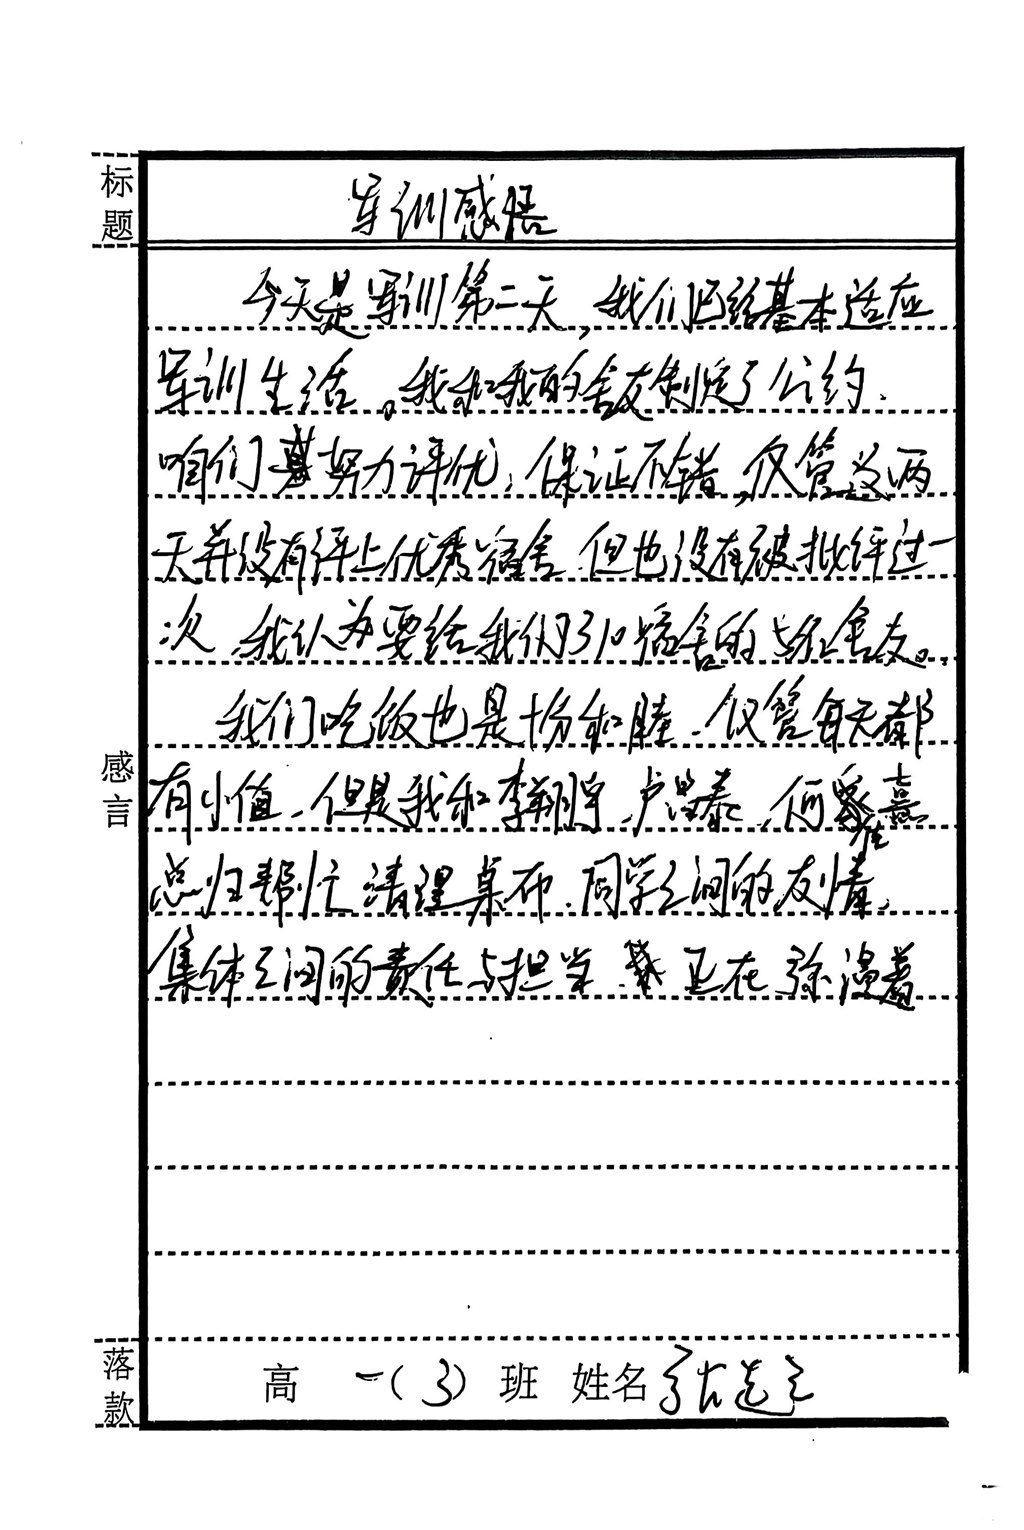 标题
军训感悟
今天是军训第二天,我们已经基本适应
军训生活。我和我的舍友制定了公约、
咱们努力评优,保证不错,仅管这两
天并没有评上优秀宿舍.但也没有被批评过一
次.我认为要给我们310宿舍的与舍友。
我们吃饭也是十分和睦.仅管每天都
感言
有小值.但是我和李翔宇.卢.何佳熹
总归帮忙清理桌布.同学之间的友情.
集体之间的责任与担当.正在弥漫着
落款
高 一(3)班 姓名 张